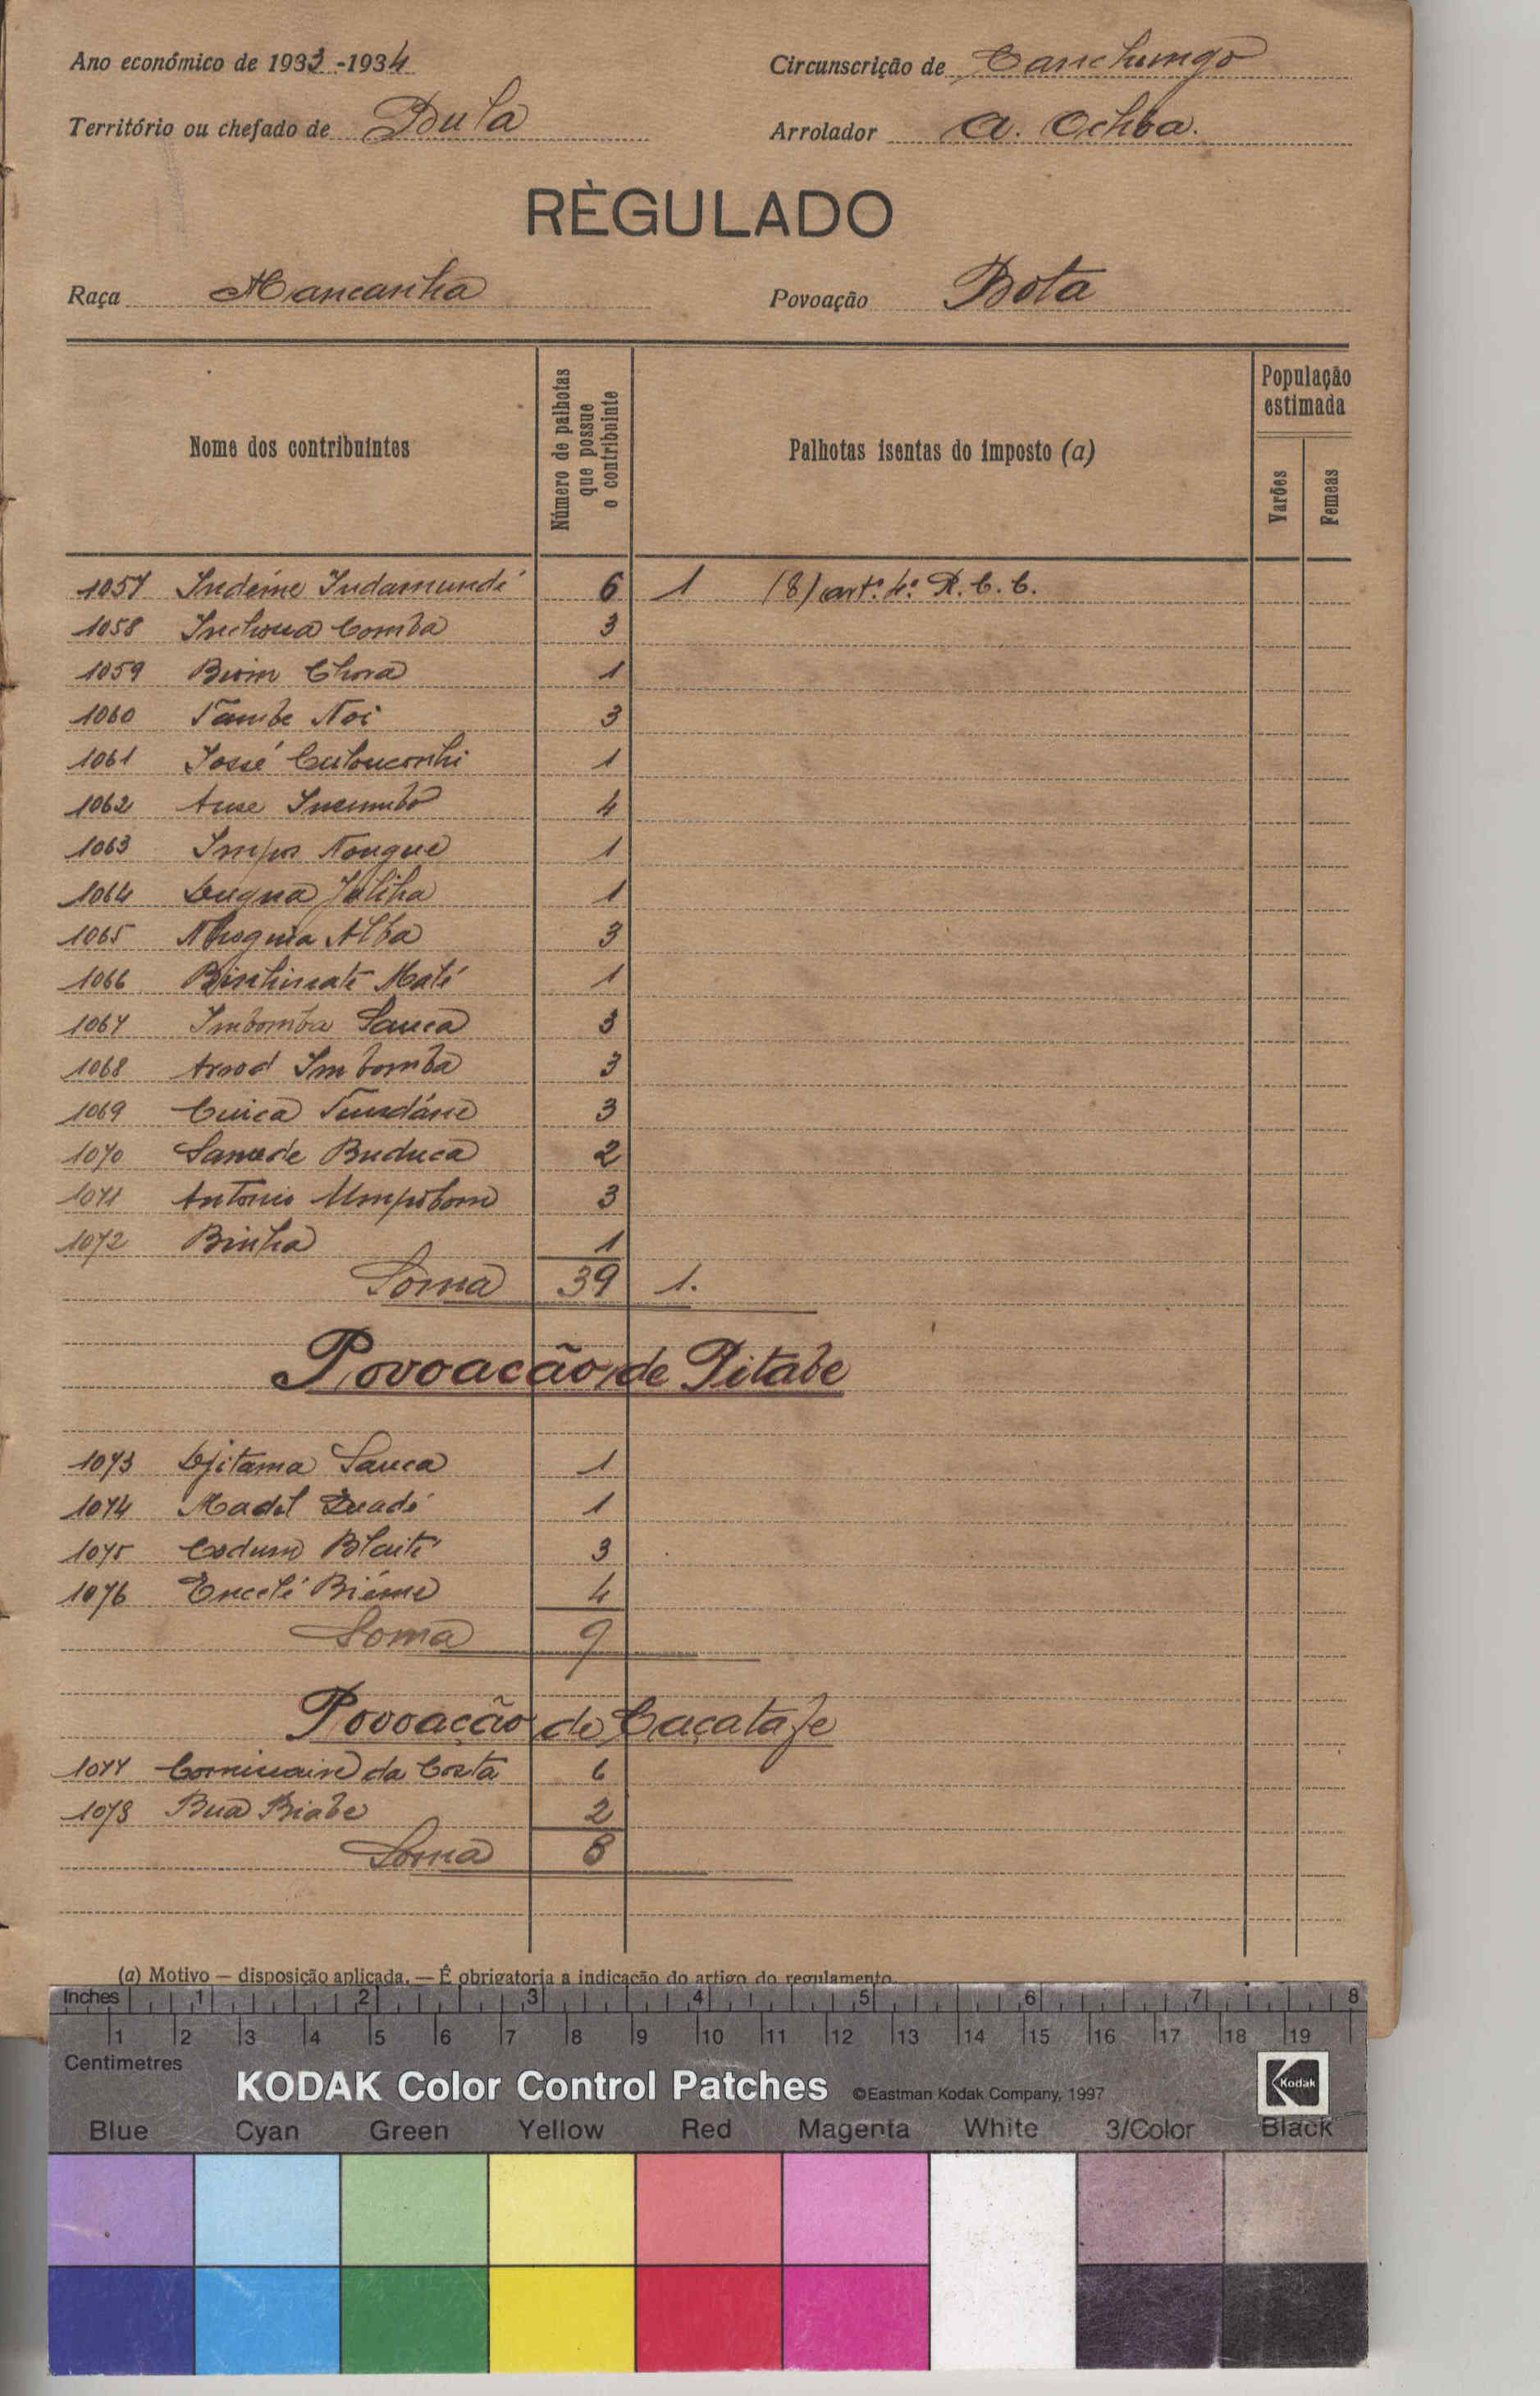 Ano económico de 1933-1934
Circunscrição de Canchungo
Território ou chefado de Bula
Arrolador A. Ochôa.
RÈGULADO
Raça Mancanha
Povoação Bota
Nome dos contribuintes
Número de palhotas que possue o contribuinte
Palhotas isentas do imposto (a)
População estimada
Varões
Femeas
1057 Indeíne Indamundé 6 1 (8) artº. 4º. R. C. C.
1058 Comba 3
1059 Chora 1
1060 Tambe Noi 3
1061 José 1
1062 4
1063 Nongue 1
1064 1
1065 Alba 3
1066 Maté 1
1067 Imbomba Sanca 3
1068 Imbomba 3
1069 Cuica 3
1070 Buduca 2
1071 António 3
1072 Binha 1
Soma 39 1.
Povoacão de Pitabe
1073 Djitama Sanca 1
1074 Madel 1
1075 3
1076 4
Soma 9
Povoacção de Caçatafe
1077 da Costa 6
1078 Bua Biabe 2
Soma 8
(a) Motivo — disposição aplicada. — É obrigatoria a indicação do artigo do regulamento.
Inches 1 2 3 4 5 6 7 8
1 2 3 4 5 6 7 8 9 10 11 12 13 14 15 16 17 18 19
Centimetres
KODAK Color Control Patches ©Eastman Kodak Company, 1997 Kodak
Blue Cyan Green Yellow Red Magenta White 3/Color Black